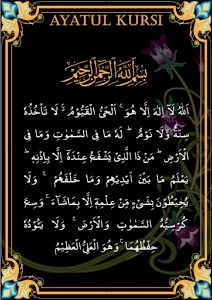 AYATUL KURSI
بِسْمِ اللهِ الرَّحْمٰنِ الرَّحِيْمِ
اَللهُ لَآ اِلٰهَ اِلَّا هُوَ ۚ اَلْحَىُّ الْقَيُّوْمُ ۚ لَا تَاْخُذُهٗ
سِنَةٌ وَّلَا نَوْمٌ ؕ لَهٗ مَا فِى السَّمٰوٰتِ وَمَا فِى
الْاَرْضِ ؕ مَنْ ذَا الَّذِىْ يَشْفَعُ عِنْدَهٗٓ اِلَّا بِاِذْنِهٖ ؕ
يَعْلَمُ مَا بَيْنَ اَيْدِيْهِمْ وَمَا خَلْفَهُمْ ۚ وَلَا
يُحِيْطُوْنَ بِشَىْءٍ مِّنْ عِلْمِهٖٓ اِلَّا بِمَاشَآءَ ۚ وَسِعَ
كُرْسِيُّهُ السَّمٰوٰتِ وَالْاَرْضَ ۚ وَلَا يَـُٔوْدُهٗ
حِفْظُهُمَا ۚ وَهُوَ الْعَلِىُّ الْعَظِيْمُ